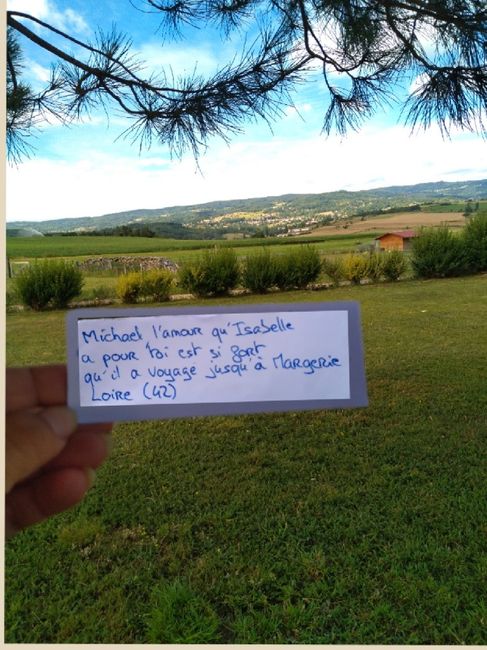 Michael l'amour qu'Isabelle
a pour toi est si fort
qu'il a voyage jusqu'à Margerie
Loire (42)